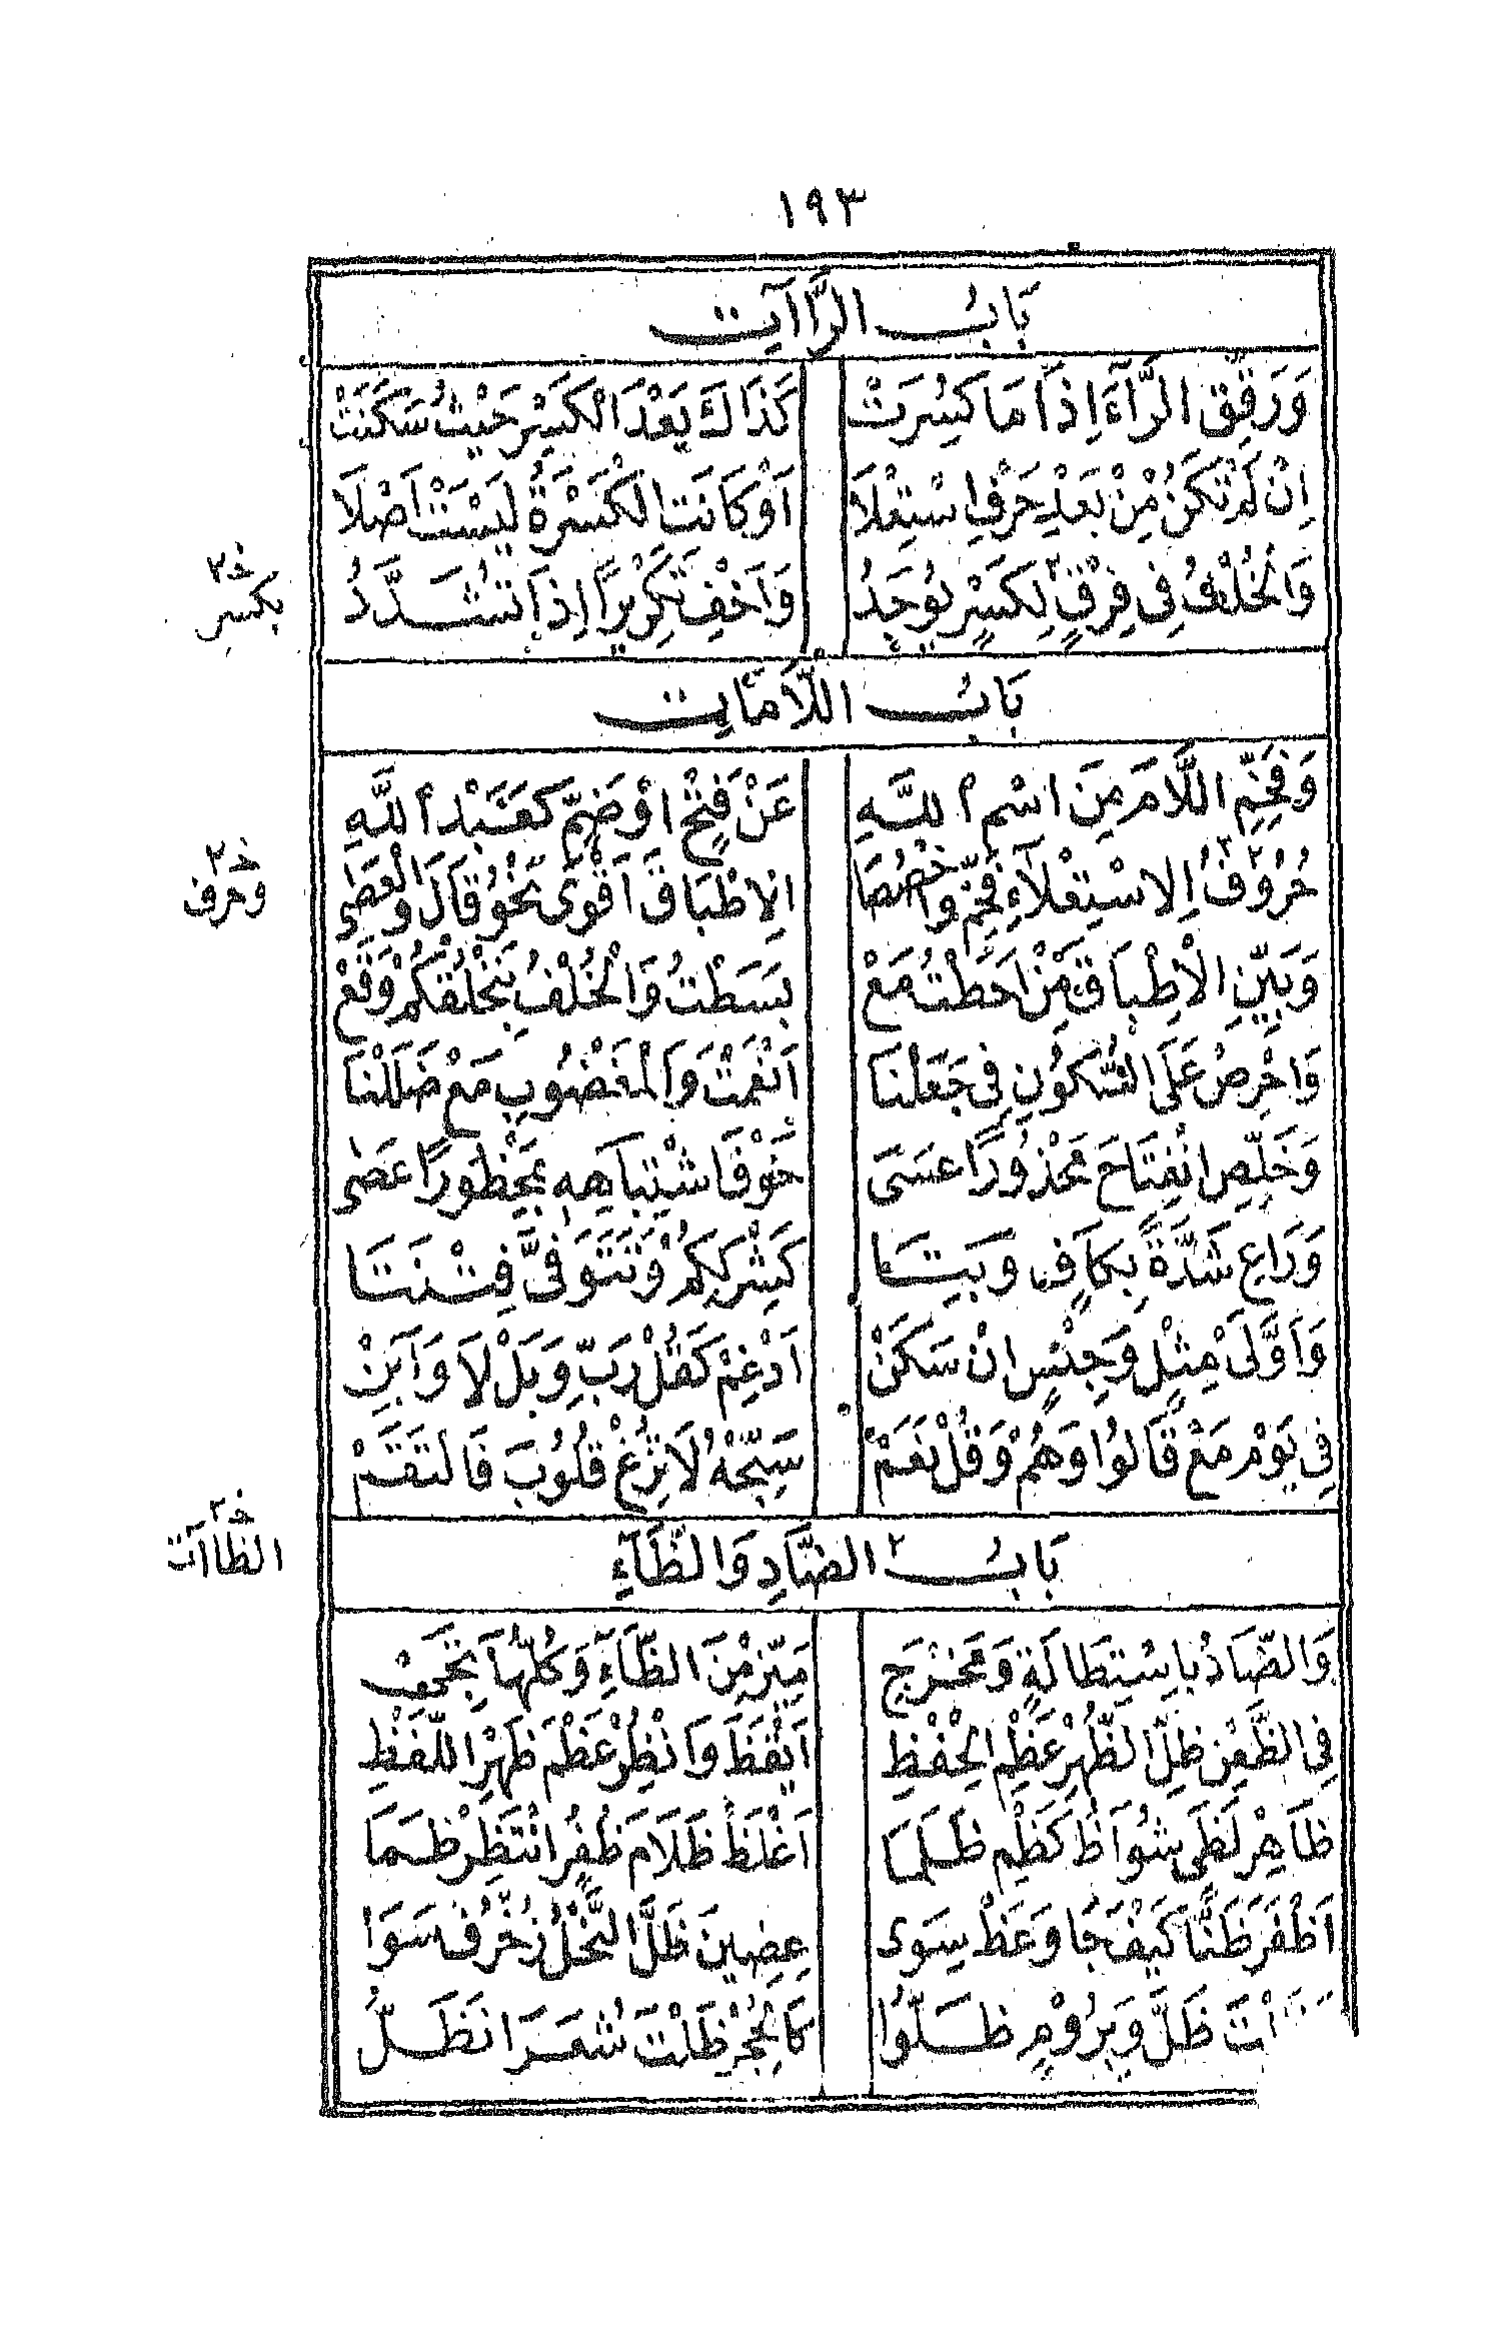 ١٩٣
بَابُ الرَّاآيت
وَرَقِّقِ الرَّآءَ اِذَا مَا كُسِرَتْ كَذَاكَ بَعْدَ الْكَسْرِ حَيْثُ سَكَنَتْ
اِنْ لَمْ تَكُنْ مِنْ بَعْدِ حَرْفِ اسْتِعْلَا اَوْ كَانَتِ الْكَسْرَةُ لَيْسَتْ اَصْلَا
وَالْخُلْفُ فِى فِرْقٍ ٢ لِكَسْرٍ يُوجَدُ وَاَخْفِ تَكْرِيْرًا اِذَا تُشَدَّدُ
خـ ٢
بكسرٍ
بَابُ اللَّامَايت
وَفَخِّمِ اللَّامَ مِنَ اسْمِ اللَّهِ عَنْ فَتْحٍ اوْ ضَمٍّ كَعَبْدُ اللَّهِ
خـ ٢
وحرف
حُرُوْفُ ٢ اِلاسْتِعْلَآءِ فَخِّمْ وَاخْصُصَا الِاطْبَاقَ اَقْوَى نَحْوُ قَالَ وَالْعَصٰى
وَبَيِّنِ الْاِطْبَاقَ مِنْ اَحَطْتُ مَعْ بَسَطْتُ وَالْخُلْفُ بِنَخْلُقْكُمْ وَقَعْ
وَاحْرِصْ عَلَى السُّكُوْنِ فِى جَعَلْنَا اَنْعَمْتَ وَالْمَغْضُوبِ مَعْ ضَلَلْنَا
وَخَلِّصِ انْفِتَاحَ مَحْذُورًا عَسَى خَوْفَ اشْتِبَاهِهِ بِمَحْظُورًا عَصٰى
وَرَاعِ شَدَّةً بِكَافٍ وَبِتَا كَشِرْكِكُمْ وَتَتَوَفَّى فِتْنَتَا
وَاَوَّلَىْ مِثْلٍ وَجِنْسٍ انْ سَكَنْ اَدْغِمْ كَقُلْ رَبِّ وَبَلْ لَا وَاَبِنْ
فِى يَوْمِ مَعْ قَالُوْا وَهُمْ وَقُلْ نَعَمْ سَبِّحْهُ لَا تُزِغْ قُلُوبَ فَالْتَقَمْ
خـ ٢
الظاآت
بَابُ ٢ الضَّادِ وَالظَّآءِ
وَالضَّادُ بِاسْتِطَالَةٍ وَمَخْرَجِ مَيِّزْ مِنَ الظَّآءِ وَكُلُّهَا تَجِى
فِى الظَّعْنِ ظِلَّ الظُّهْرِ عَظْمِ الْحِفْظِ اَيْقَظَ وَانْظِرْ عَظْمَ ظَهْرِ اللَّفْظِ
ظَاهِرْ لَظَى شُوَاظُ كَظْمِ ظَلَمَا اَغْلَظْ ظَلَامَ ظُفُرٍ انْتَظِرْ ظَمَا
اَظْفَرَ ظَنًّا كَيْفَ جَا وَعَظْ سِوَى عِضِينَ ظَلَّ النَّحْلُ زُخْرُفٍ سَوَا
ظَلْتَ وَبِرُوْمٍ ظَلُّوْا كَالْحِجْرِ ظَلَّتْ شُعَرَا نَظَلُّ